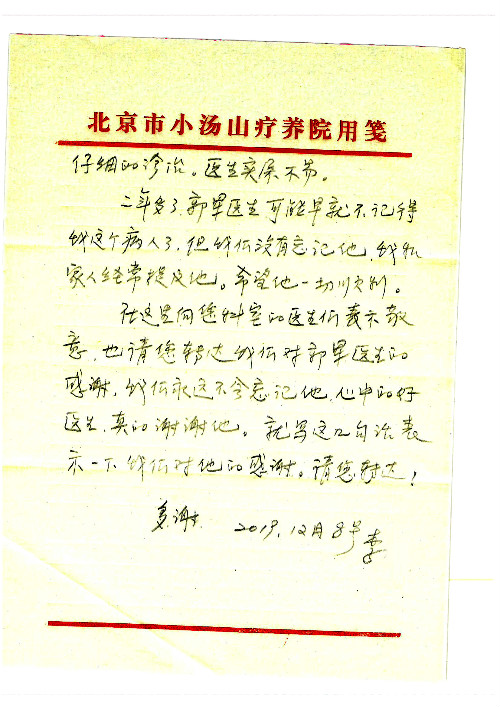 北京市小汤山疗养院用笺
仔细的诊治。医生实属不易。
二年多了,郭军医生可能早就不记得
我这个病人了,但我们没有忘记他,我和
家人经常提及他。希望他一切顺利。
在这里向您科室的医生们表示敬
意,也请您转达我们对郭军医生的
感谢,我们永远不会忘记他,心中的好
医生,真的谢谢他。就写这几句话表
示一下我们对他的感谢。请您转达!
多谢 2019.12月8号 李